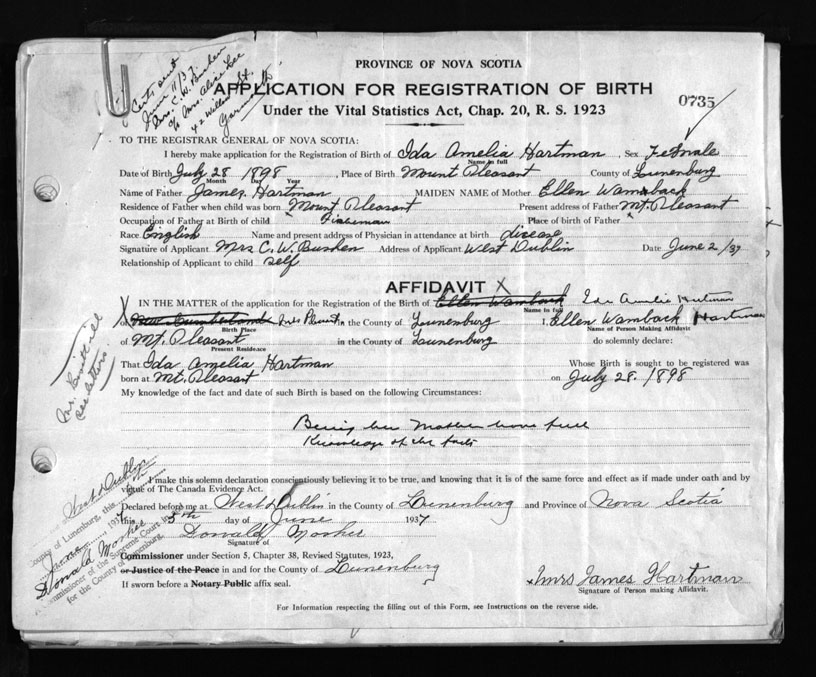 Certs sent
June 11/37
Mrs. C. W. Bushen
c/o Mrs. Alice Lee
42 Willow St.
Yarmouth
PROVINCE OF NOVA SCOTIA
APPLICATION FOR REGISTRATION OF BIRTH
Under the Vital Statistics Act, Chap. 20, R. S. 1923
0735
TO THE REGISTRAR GENERAL OF NOVA SCOTIA:
I hereby make application for the Registration of Birth of Ida Amelia Hartman, Sex Female
Name in full
Date of Birth July 28 1898, Place of Birth Mount Pleasant County of Lunenburg
Month Day Year
Name of Father James Hartman MAIDEN NAME of Mother Ellen Wamback
Residence of Father when child was born Mount Pleasant Present address of Father Mt. Pleasant
Occupation of Father at Birth of child Fisherman Place of birth of Father
Race English Name and present address of Physician in attendance at birth
Signature of Applicant Mrs C. W. Bushen Address of Applicant West Dublin Date June 2/37
Relationship of Applicant to child self
AFFIDAVIT X
X IN THE MATTER of the application for the Registration of the Birth of Ellen Wamback Ida Amelia Hartman
Name in full
of in the County of Lunenburg I, Ellen Wamback Hartman
Birth Place Name of Person Making Affidavit
of Mt. Pleasant in the County of Lunenburg do solemnly declare:
Present Residence
That Ida Amelia Hartman Whose Birth is sought to be registered was
born at Mt. Pleasant on July 28. 1898
My knowledge of the fact and date of such Birth is based on the following Circumstances:
Being her Mother have full
Knowledge of the facts
I make this solemn declaration conscientiously believing it to be true, and knowing that it is of the same force and effect as if made under oath and by
virtue of The Canada Evidence Act.
Declared before me at West Dublin in the County of Lunenburg and Province of Nova Scotia
this 5th day of June 1937
Donald Mosher
Signature of
Commissioner under Section 5, Chapter 38, Revised Statutes, 1923,
or Justice of the Peace in and for the County of Lunenburg
If sworn before a Notary Public affix seal.
x Mrs James Hartman
Signature of Person making Affidavit.
For Information respecting the filling out of this Form, see Instructions on the reverse side.
see letters.
West Dublin
County of Lunenburg, this 5th
June 1937
Donald Mosher
Commissioner of the Supreme Court in
for the County of Lunenburg.